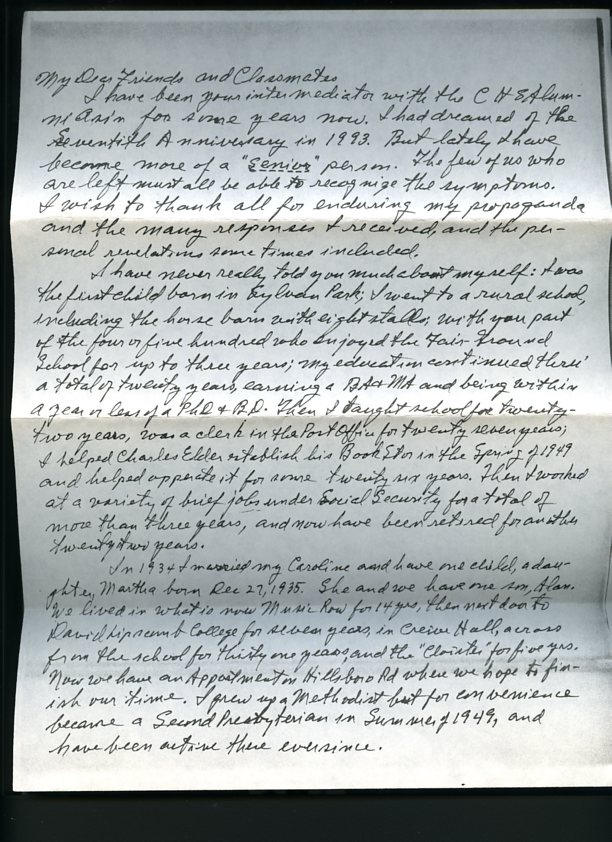 My Dear Friends and Classmates
I have been your intermediator with the C H E Alum-
ni Assn for some years now. I had dreamed of the
Seventith Anniversary in 1993. But lately I have
become more of a "Senior" person. The few of us who
are left must all be able to recognize the symptoms.
I wish to thank all for enduring my propaganda
and the many responses I received, and the per-
sonal revelations some times included.
I have never really told you much about myself: I was
the first child born in Sylvan Park; I went to a rural school,
including the horse barn with eight stalls; with you part
of the four or five hundred who enjoyed the Fair Ground
School for up to three years; my education continued thru'
a total of twenty years, earning a BA & MA and being within
a year or less of a PhD & B.D. Then I taught school for twenty-
two years, was a clerk in the Post Office for twenty seven years;
I helped Charles Elder establish his Book Stor in the Spring of 1949
and helped opperate it for some twenty six years. Then I worked
at a variety of brief jobs under Social Security for a total of
more than three years, and now have been retired for another
twenty two years.
In 1934 I married my Caroline and have one child, a dau-
ghter, Martha born Dec 27, 1935. She and we have one son, Alan.
We lived in what is now Music Row for 14 yrs, then next door to
David Lipscomb College for seven years, in Creive Hall, across
from the school for thirty one years and the "Cloister" for five yrs.
Now we have an Appartment on Hillsboro Rd where we hope to fin-
ish our time. I grew up a Methodist but for convenience
became a Second Presbyterian in Summer of 1949, and
have been active there ever since.